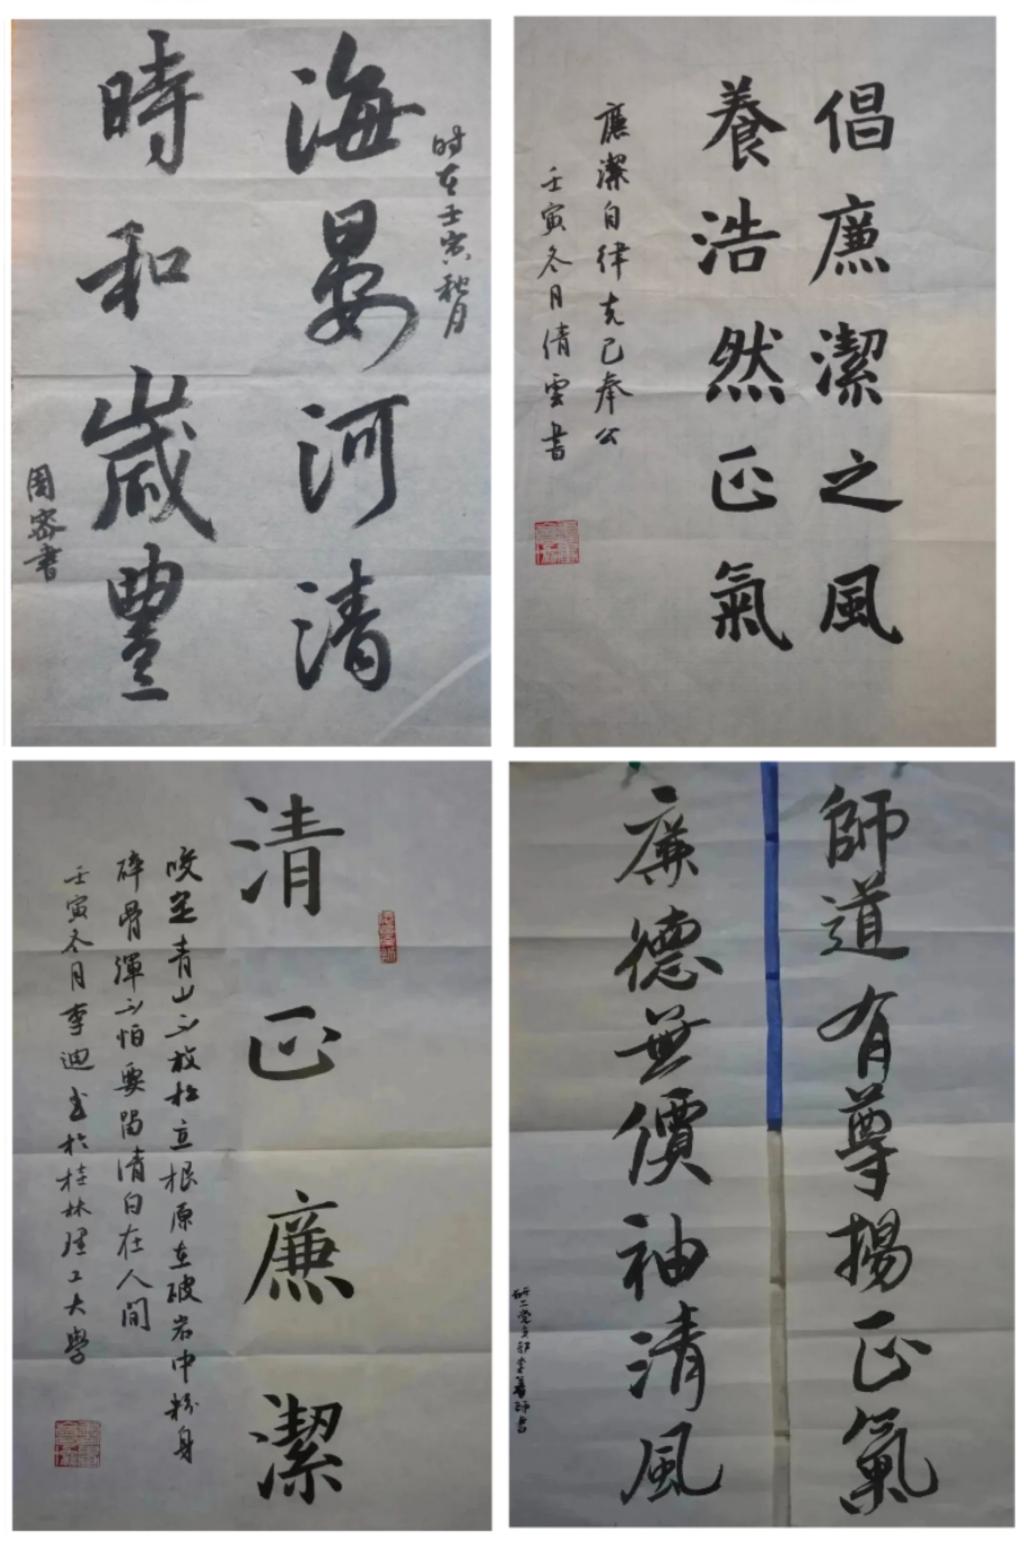 时在壬寅秋月
海晏河清
時和歲豐
周
書
倡廉潔之風
養浩然正氣
廉潔自律克己奉公
壬寅冬月倩雲書
清正廉潔
咬定青山不放松立根原在破岩中粉身
碎骨渾不怕要留清白在人间
壬寅冬月李迪书於桂林理工大學
師道有尊揚正氣
廉德無價袖清風
研二党支部